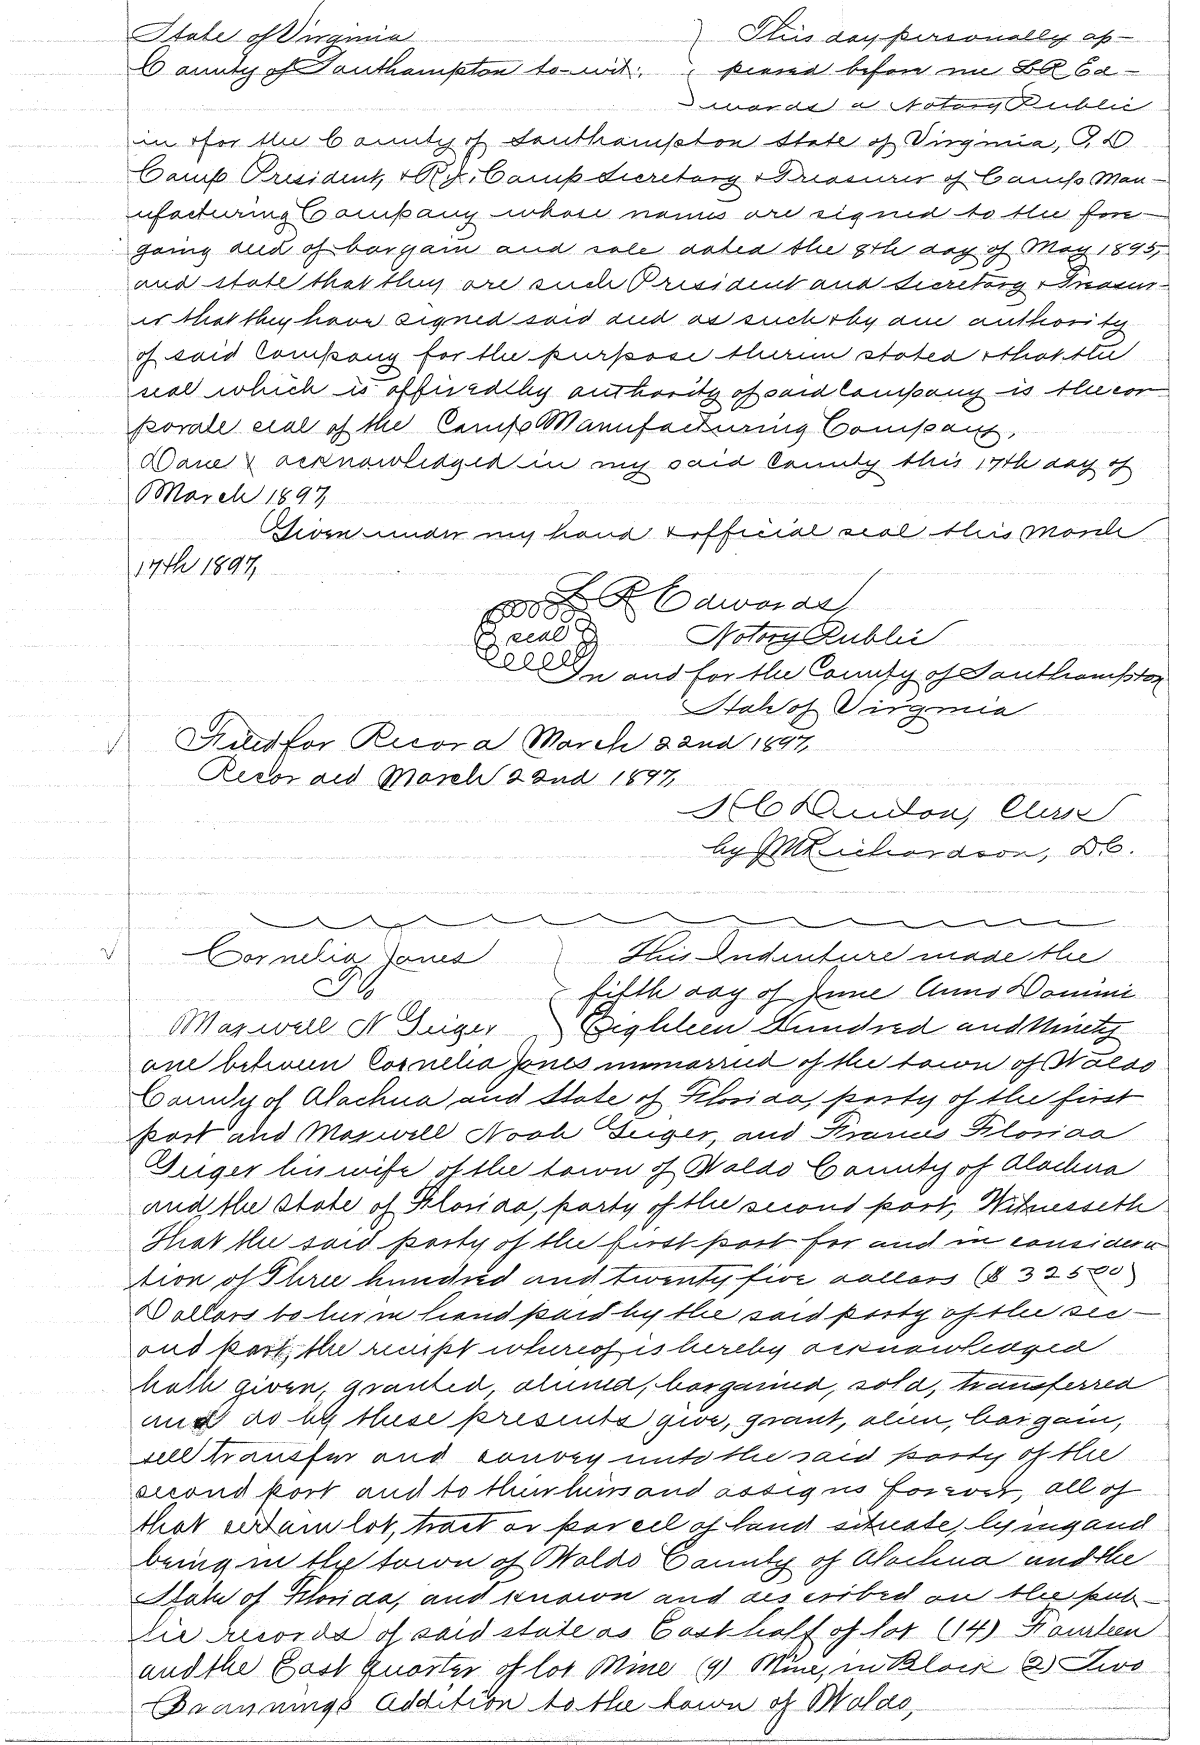 State of Virginia } This day personally ap-
County of Southampton to-wit: } peared before me L R Ed-
} wards a Notary Public
in & for the County of Southampton State of Virginia, P. D
Camp President, & R. J. Camp Secretary & Treasurer of Camp Man-
ufacturing Company whose names are signed to the fore-
going deed of bargain and sale dated the 8th day of May 1895,
and state that they are such President and Secretary & Treasur-
er that they have signed said deed as such & by due authority
of said Company for the purpose therein stated & that the
seal which is affixed by authority of said Company is the cor
porate seal of the Camp Manufacturing Company.
Done & acknowledged in my said County this 17th day of
March 1897,
Given under my hand & official seal this March
17th 1897,
L R Edwards
seal Notary Public
In and for the County of Southampton
State of Virginia
√ Filed for Record March 22nd 1897,
Recorded March 22nd 1897,
H C Denton, Clerk
by J M Richardson, D. C.
√ Cornelia Jones } This Indenture made the
To } fifth day of June Anno Domini
Maxwell N Geiger } Eighteen Hundred and Ninety
one between Cornelia Jones unmarried of the town of Waldo
County of Alachua and State of Florida, party of the first
part and Maxwell Noah Geiger, and Francis Florida
Geiger his wife of the town of Waldo County of Alachua
and the State of Florida, party of the second part, Witnesseth
That the said party of the first part for and in considera
tion of Three hundred and twenty five dollars ($ 325 00)
Dollars to her in hand paid by the said party of the sec-
ond part, the receipt whereof is hereby acknowledged
hath given, granted, aliened, bargained, sold, transferred
and do by these presents give, grant, alien, bargain,
sell transfer and convey unto the said party of the
second part and to their heirs and assigns forever, all of
that certain lot, tract or parcel of land situate, lying and
being in the town of Waldo County of Alachua and the
State of Florida, and known and described on the pub-
lic records of said state as East half of lot (14) Fourteen
and the East quarter of lot Nine (9) Nine, in Block (2) Two
Brannings Addition to the town of Waldo,